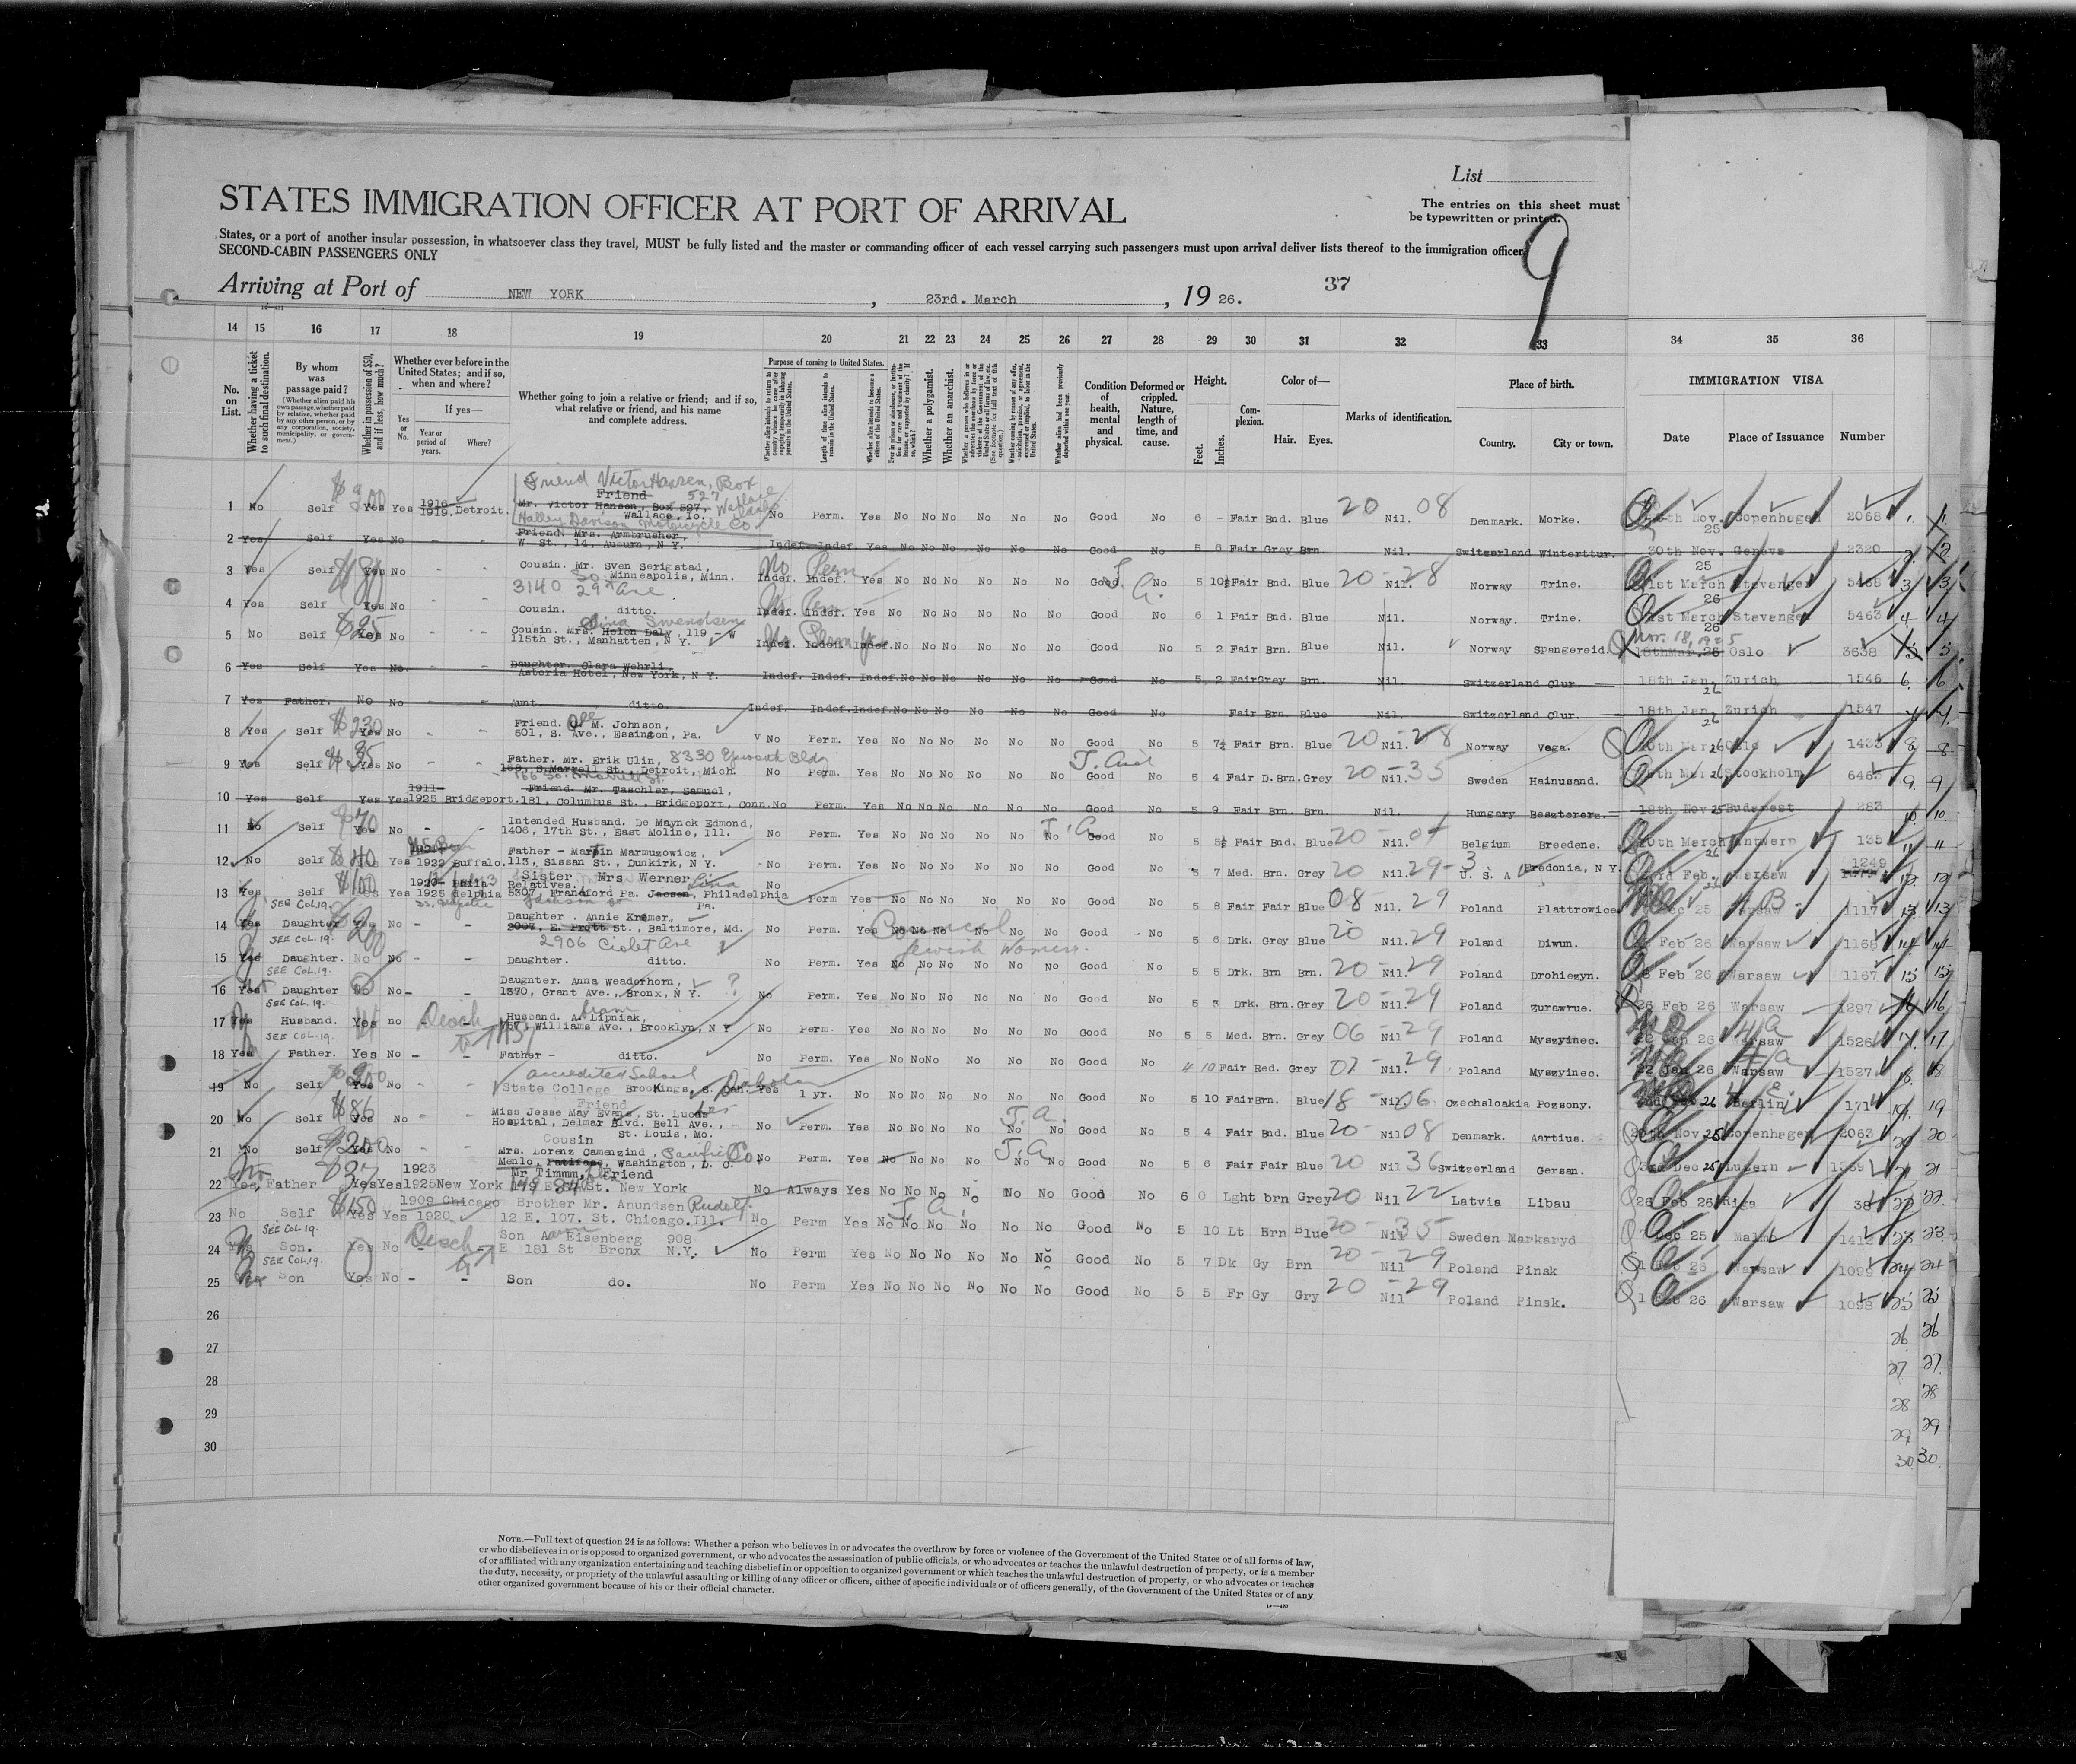 List
STATES IMMIGRATION OFFICER AT PORT OF ARRIVAL
The entries on this sheet must
be typewritten or printed.
States, or a port of another insular possession, in whatsoever class they travel, MUST be fully listed and the master or commanding officer of each vessel carrying such passengers must upon arrival deliver lists thereof to the immigration officer
SECOND-CABIN PASSENGERS ONLY
9
Arriving at Port of NEW YORK, 23rd. March, 19 26.
37
14 15 16 17 18 19 20 21 22 23 24 25 26 27 28 29 30 31 32 33 34 35 36
No. on List.
Whether having a ticket to such final destination.
By whom was passage paid?
(Whether alien paid his own passage, whether paid by relative, whether paid by any other person, or by any corporation, society, municipality, or government.)
Whether in possession of $50, and if less, how much?
Whether ever before in the United States; and if so, when and where?
Yes or No.
If yes—
Year or period of years.
Where?
Whether going to join a relative or friend; and if so, what relative or friend, and his name and complete address.
Purpose of coming to United States.
Length of time alien intends to remain in the United States.
Whether alien intends to become a citizen of the United States.
Whether a polygamist.
Whether an anarchist.
Condition of health, mental and physical.
Deformed or crippled. Nature, length of time, and cause.
Height.
Feet. Inches.
Complexion.
Color of—
Hair. Eyes.
Marks of identification.
Place of birth.
Country. City or town.
IMMIGRATION VISA
Date Place of Issuance Number
Friend Victor Hansen, Box
1 No Self $200 Yes Yes 1916 1919. Detroit. Friend Mr. Victor Hansen, Box 527, Wallace, Io. No Perm. Yes No No No No No No Good No 6 - Fair Bnd. Blue 20 Nil. 08 Denmark. Morke. Nov. 25 Copenhagen 2068 1. 1.
2 Yes Self Yes No - - Friend. Mrs. Armbrusher, W St., 14, Auburn, N Y. Indef. Indef. Yes No No No No No No Good No 5 6 Fair Grey Brn. Nil. Switzerland Wintertur. 30th Nov. 25 Geneva 2320 2. 2
3 Yes Self Yes No - - Cousin. Mr. Sven Serigstad, Minneapolis, Minn. 3140 29 Ave No Perm Indef. Indef. Yes No No No No No No Good No 5 10½ Fair Bnd. Blue 20-28 Nil. Norway Trine. 1st March 26 Stavenger 3 3
4 Yes Self Yes No - - Cousin. ditto. Indef. Indef. Yes No No No No No No Good No 6 1 Fair Bnd. Blue Nil. Norway. Trine. 1st March 26 Stavenger 5463 4. 4
5 No Self $25 Yes No - - Cousin. Mrs. Helen Daly, 119 - W 115th St., Manhatten, N Y. Indef. Indef. Indef. No No No No No No Good No 5 2 Fair Brn. Blue Nil. Norway Spangereid. Nov. 18, 1925 18thMar.26 Oslo 3638 5
6 Yes Self Yes No. - - Daughter. Clara Wehrli, Astoria Hotel, New York, N Y. Indef. Indef. Indef. No No No No No No Good No 5 2 Fair Grey Brn. Nil. Switzerland Clur. 18th Jan 26 Zurich 1546 6. 6
7 Yes Father. No No Aunt ditto. Indef. Indef. Indef. No No No No No No Good No Fair Brn. Blue Nil. Switzerland Clur. 18th Jan 26 Zurich 1547
8 Yes Self $230 Yes No - - Friend. M. Johnson, 501, S. Ave., Essington, Pa. No Perm. Yes No No No No No No Good No 5 7½ Fair Brn. Blue 20-28 Nil. Norway Vega. Oslo 1433 8 8
9 Yes Self $35 Yes No - - Father. Mr. Erik Ulin, 8330 Epworth Bldv 166, S.Marrell St., Detroit, Mich. No Perm. Yes No No No No No No Good No 5 4 Fair D.Brn. Grey 20-35 Nil. Sweden Hainusand. Stockholm 9. 9
10 Yes Self Yes Yes 1911- 1925 Bridgeport. Friend. Mr. Taschler, Samuel, 181, Columbus St., Bridgeport, Conn. No Perm. Yes No No No No No No Good No 5 9 Fair Brn. Brn. Nil. Hungary Besztercz. 18th Nov 25 Budapest 283 10. 10.
11 No Self $70 Yes No - - Intended Husband. De Maynck Edmond, 1406, 17th St., East Moline, Ill. No Perm. Yes No No No No No No Good No 5 5½ Fair Bnd. Blue 20-04 Nil. Belgium Breedene. 10th March 26 Antwerp 135 11 11
12 No Self $40 Yes Yes 1922 Buffalo. Father - Martin Marmuzowicz, 113, Sissan St., Dunkirk, N Y. No Perm. Yes No No No No No No Good No 5 7 Med. Brn. Grey 20 Nil. 29-3 U. S. A Fredonia, N Y. Feb. 26 Warsaw 1249 12. 12
13 Yes Self $100 Yes Yes 1925 Philadelphia Sister Mrs Werner Relatives. 5307, Frandford Pa. Jacson, Philadelphia Pa. No Perm Yes No No No No No No Good No 5 8 Fair Fair Blue 08 Nil. 29 Poland Plattrowice Dec 25 1117 13 13
SEE COL.19.
14 Yes Daughter Yes No - - Daughter. Annie Kremer, 2007, E. Pratt St., Baltimore, Md. 2906 Violet Ave No Perm. Yes No No No No No No Good No 5 6 Drk. Grey Blue 20 Nil. 29 Poland Diwun. Feb 26 Warsaw 1168 14 14
Council Jewish Women.
SEE COL.19.
15 Yes Daughter. No No - - Daughter. ditto. No Perm. Yes No No No No No No Good No 5 5 Drk. Brn Brn. 20-29 Nil. Poland Drohiczyn. Feb 26 Warsaw 1167 15 15
SEE COL.19.
16 Yes Daughter No No - - Daughter. Anna Weaderhorn, 1370, Grant Ave., Bronx, N Y. ? No Perm. Yes No No No No No No Good No 5 3 Drk. Brn. Grey 20-29 Nil. Poland Zurawrue. 26 Feb 26 Warsaw 1297 16 16
SEE COL.19.
17 Yes Husband. Yes no - - Husband. A. Lipniak, Williams Ave., Brooklyn, N Y No Perm. Yes No No No No No No Good No 5 5 Med. Brn. Grey 06-29 Nil. Poland Myszyinec. 22 Jan 26 Warsaw 1526 17. 17
SEE COL.19.
18 Yes Father. Yes No - - Father - ditto. No Perm. Yes No No No No No No Good No 4 10 Fair Red. Grey 07-29 Nil. Poland Myszyinec. 22 Jan 26 Warsaw 1527 18. 18
19 No Self Yes No - - accredited School State College Brookings, S. Dak. Dakota Yes 1 yr. No No No No No No No Good No 5 10 Fair Brn. Blue 18-06 Nil Czechsloakia Pozsony. 26 Berlin 171 19. 19
20 No Self $86 Yes No - - Friend Miss Jesse May Evans, St. Lucas Hospital, Delmar Blvd. Bell Ave., St. Louis, Mo. No Perm. Yes No No No No No No Good No 5 4 Fair Bnd. Blue 20-08 Nil Denmark. Aartius. Nov 25 Copenhagen 2063 20 20
21 No Self $200 Yes No - - Cousin Mrs. Lorenz Camenzind, Menlo, Washington, D. C. No Perm. Yes No No No No No No Good No 5 6 Fair Fair Blue 20 Nil 36 Switzerland Gersan. 3rd Dec 25 Luzern 21 21
22 Yes, Father Yes Yes 1923 1925 New York Mr Timmm, Friend 179 E St. New York No Always Yes No No No No No No Good No 6 0 Lght brn Grey 20 Nil 22 Latvia Libau 26 Feb 26 Riga 38 22 22.
23 No Self $150 Yes Yes 1909 Chicago 1920 Brother Mr. Anundsen Rudolf. 12 E. 107. St. Chicago. Ill. No Perm Yes No No No No No No Good No 5 10 Lt Brn Blue 20-35 Nil Sweden Markaryd Dec 25 Malmo 1412 23 23
SEE COL 19.
24 Son. Yes No - - Son Aaron Eisenberg 908 E 181 St Bronx N.Y. No Perm Yes No No No No No No Good No 5 7 Dk Gy Brn 20-29 Nil Poland Pinsk 26 Warsaw 1099 24 24
SEE COL.19.
25 Son Yes No - - Son do. No Perm Yes No No No No No No Good No 5 5 Fr Gy Gry 20-29 Nil Poland Pinsk. 26 Warsaw 1098 25 25
26 26 26
27 27 27.
28 28 28
29 29 29
30 30 30.
NOTE.—Full text of question 24 is as follows: Whether a person who believes in or advocates the overthrow by force or violence of the Government of the United States or of all forms of law,
or who disbelieves in or is opposed to organized government, or who advocates the assassination of public officials, or who advocates or teaches the unlawful destruction of property, or is a member
of or affiliated with any organization entertaining and teaching disbelief in or opposition to organized government or which teaches the unlawful destruction of property, or who advocates or teaches
the duty, necessity, or propriety of the unlawful assaulting or killing of any officer or officers, either of specific individuals or of officers generally, of the Government of the United States or of any
other organized government because of his or their official character.